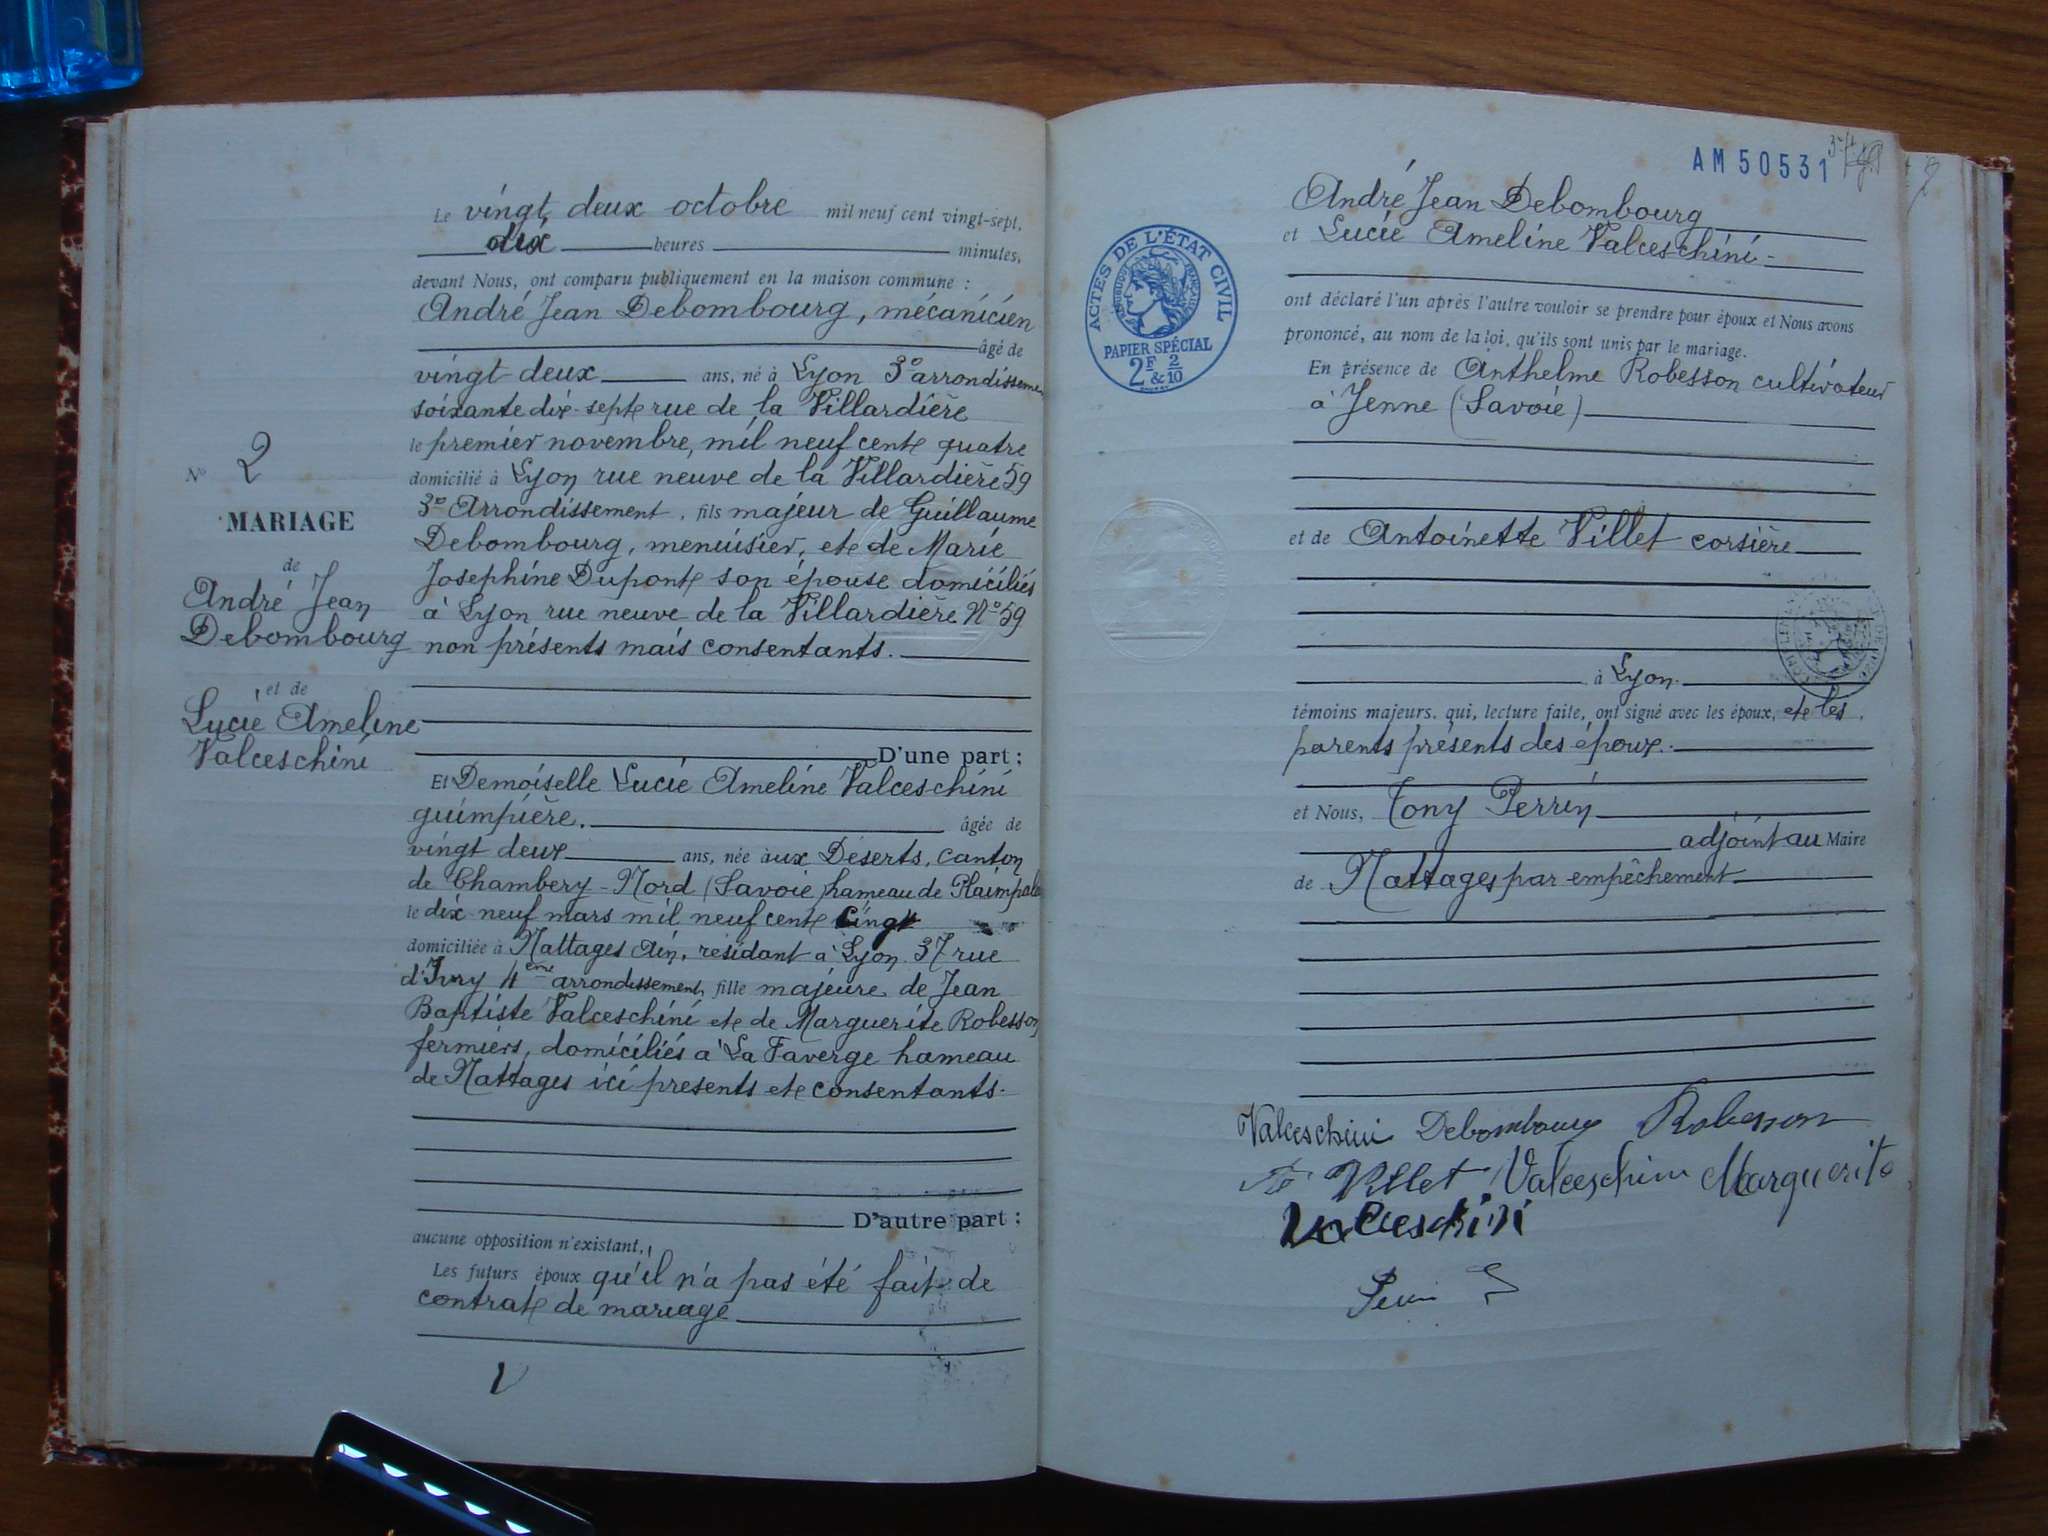 Le vingt deux octobre mil neuf cent vingt-sept,
dix heures minutes,
devant Nous, ont comparu publiquement en la maison commune :
André Jean Debombourg, mécanicien
âgé de
vingt deux ans, né à Lyon 3e arrondissement
soixante dix-sept rue de la Villardière
le premier novembre, mil neuf cent quatre
domicilié à Lyon rue neuve de la Villardière 59
3e Arrondissement, fils majeur de Guillaume
Debombourg, menuisier, et de Marie
Josephine Dupont son épouse domiciliés
à Lyon rue neuve de la Villardière No 59
non présents mais consentants.
No 2
MARIAGE
de
André Jean
Debombourg
et de
Lucie Ameline
Valceschini
D'une part ;
Et Demoiselle Lucie Ameline Valceschini
guimpière. âgée de
vingt deux ans, née aux Déserts, canton
de Chambery-Nord (Savoie) hameau de Plaimpalais
le dix neuf mars mil neuf cent cinq
domiciliée à Nattages Ain, residant à Lyon 37 rue
d'Ivry 4ème arrondissement, fille majeure de Jean
Baptiste Valceschini et de Marguerite Robesson
fermiers, domiciliés à La Faverge hameau
de Nattages ici presents et consentants.
D'autre part ;
aucune opposition n'existant,
Les futurs époux qu'il n'a pas été fait de
contrat de mariage
AM 50531
André Jean Debombourg
et Lucie Ameline Valceschini
ACTES DE L'ÉTAT CIVIL
RÉPUBLIQUE FRANÇAISE
PAPIER SPÉCIAL
2F & 2/10
ont déclaré l'un après l'autre vouloir se prendre pour époux et Nous avons
prononcé, au nom de la loi, qu'ils sont unis par le mariage.
En présence de Anthelme Robesson cultivateur
à Jenne (Savoie)
et de Antoinette Villet corsière
à Lyon
témoins majeurs, qui, lecture faite, ont signé avec les époux, et les
parents présents des époux.
et Nous, Tony Perrin
adjoint au Maire
de Nattages par empêchement
Valceschini Debombourg Robesson
Villet Valceschini Marguerite
Valceschini
Perrin